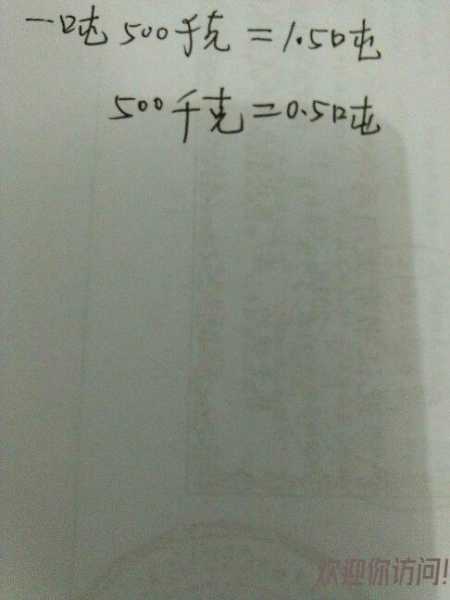 一吨500千克=1.5吨
500千克=0.5吨
欢迎你访问!